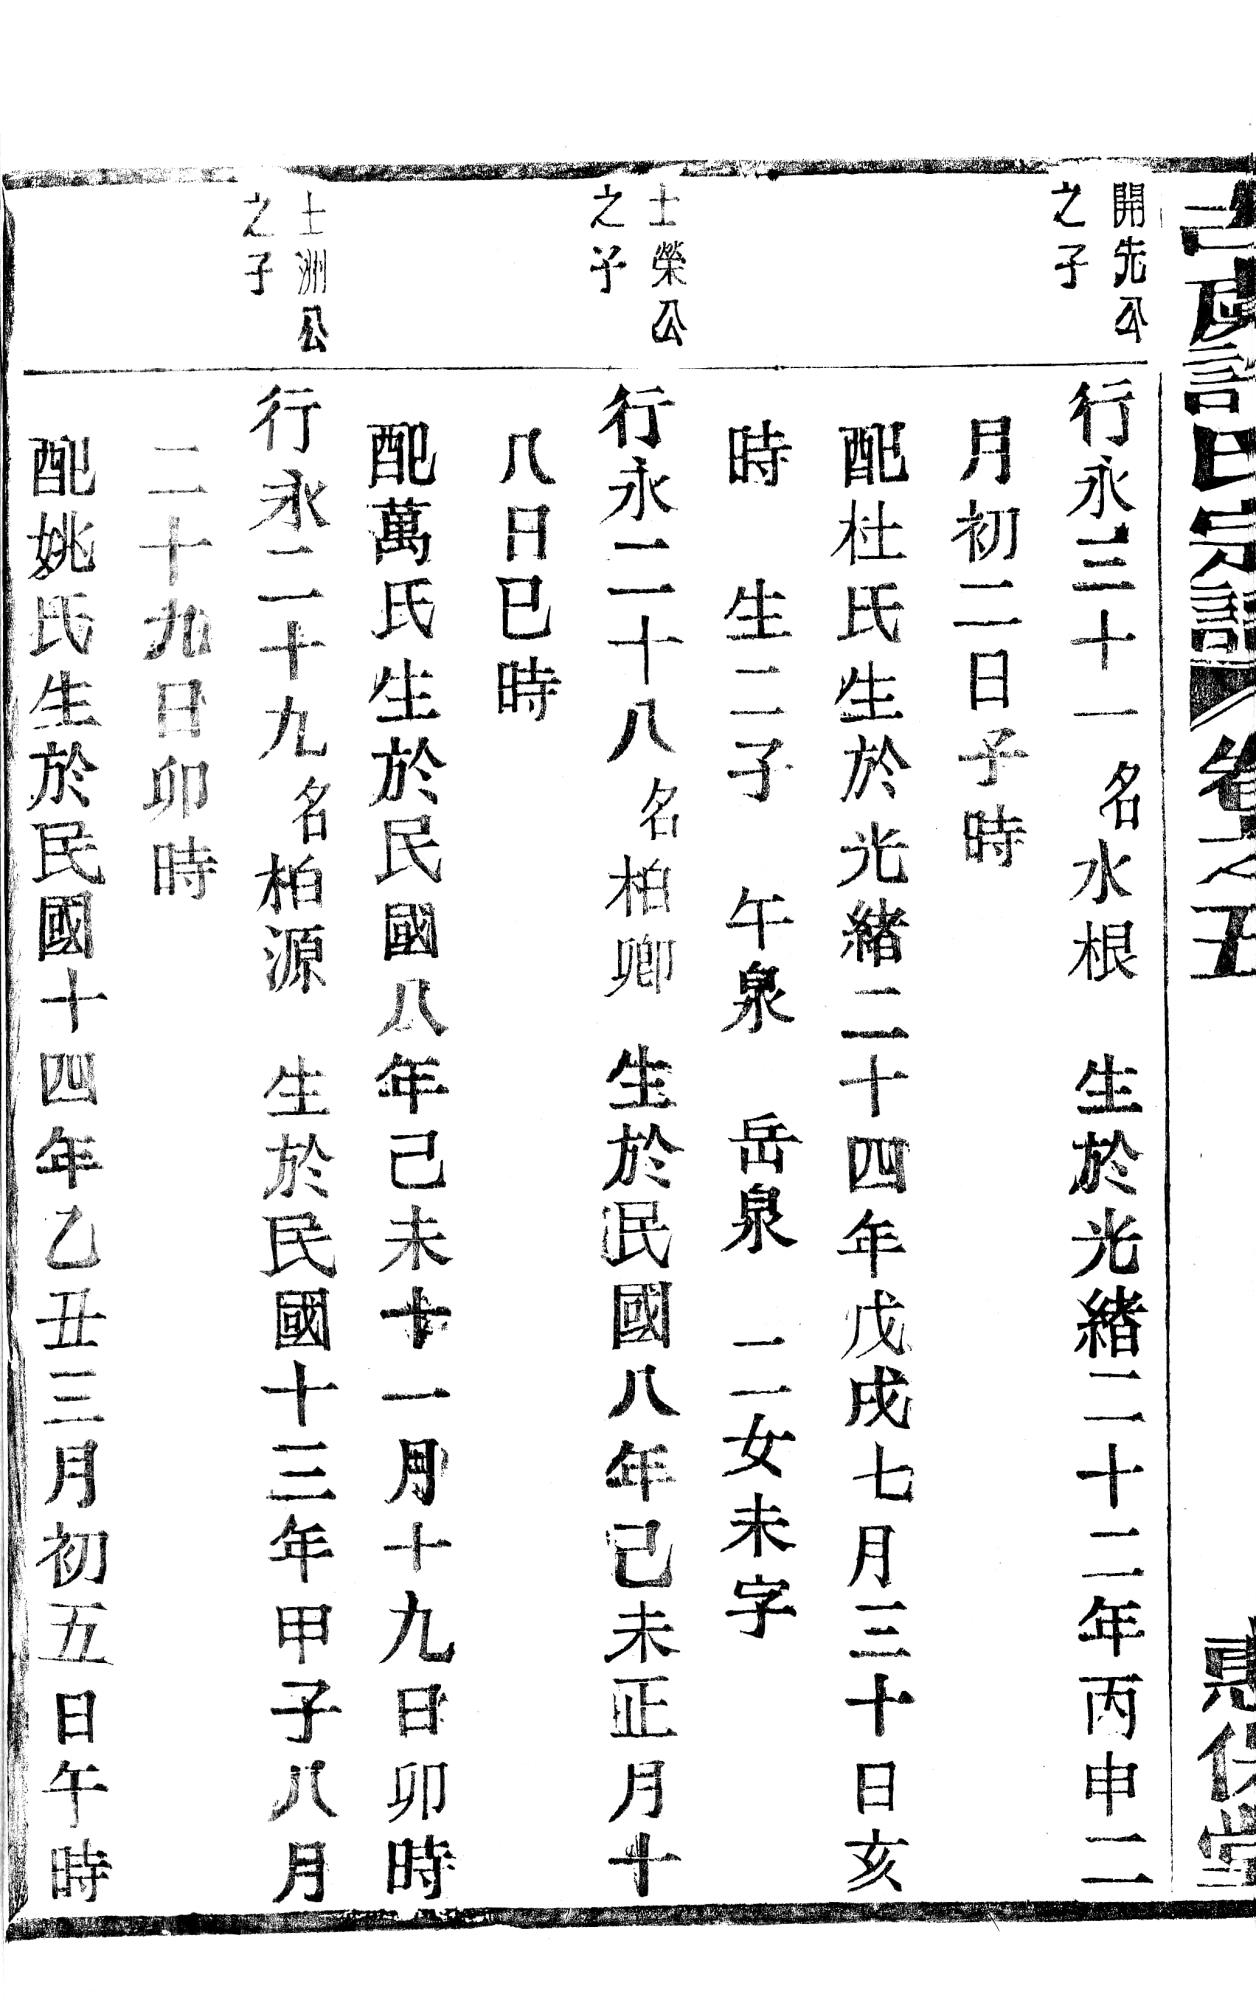 氏宗譜 卷之五 惠保堂
開先公
之子
行永三十一名水根 生於光緒二十二年丙申二
月初二日子時
配杜氏生於光緒二十四年戊戌七月三十日亥
時 生二子 午泉 岳泉 二女未字
士榮公
之子
行永二十八名柏卿 生於民國八年己未正月十
八日巳時
配萬氏生於民國八年己未十一月十九日卯時
士洲公
之子
行永二十九名柏源 生於民國十三年甲子八月
二十九日卯時
配姚氏生於民國十四年乙丑三月初五日午時